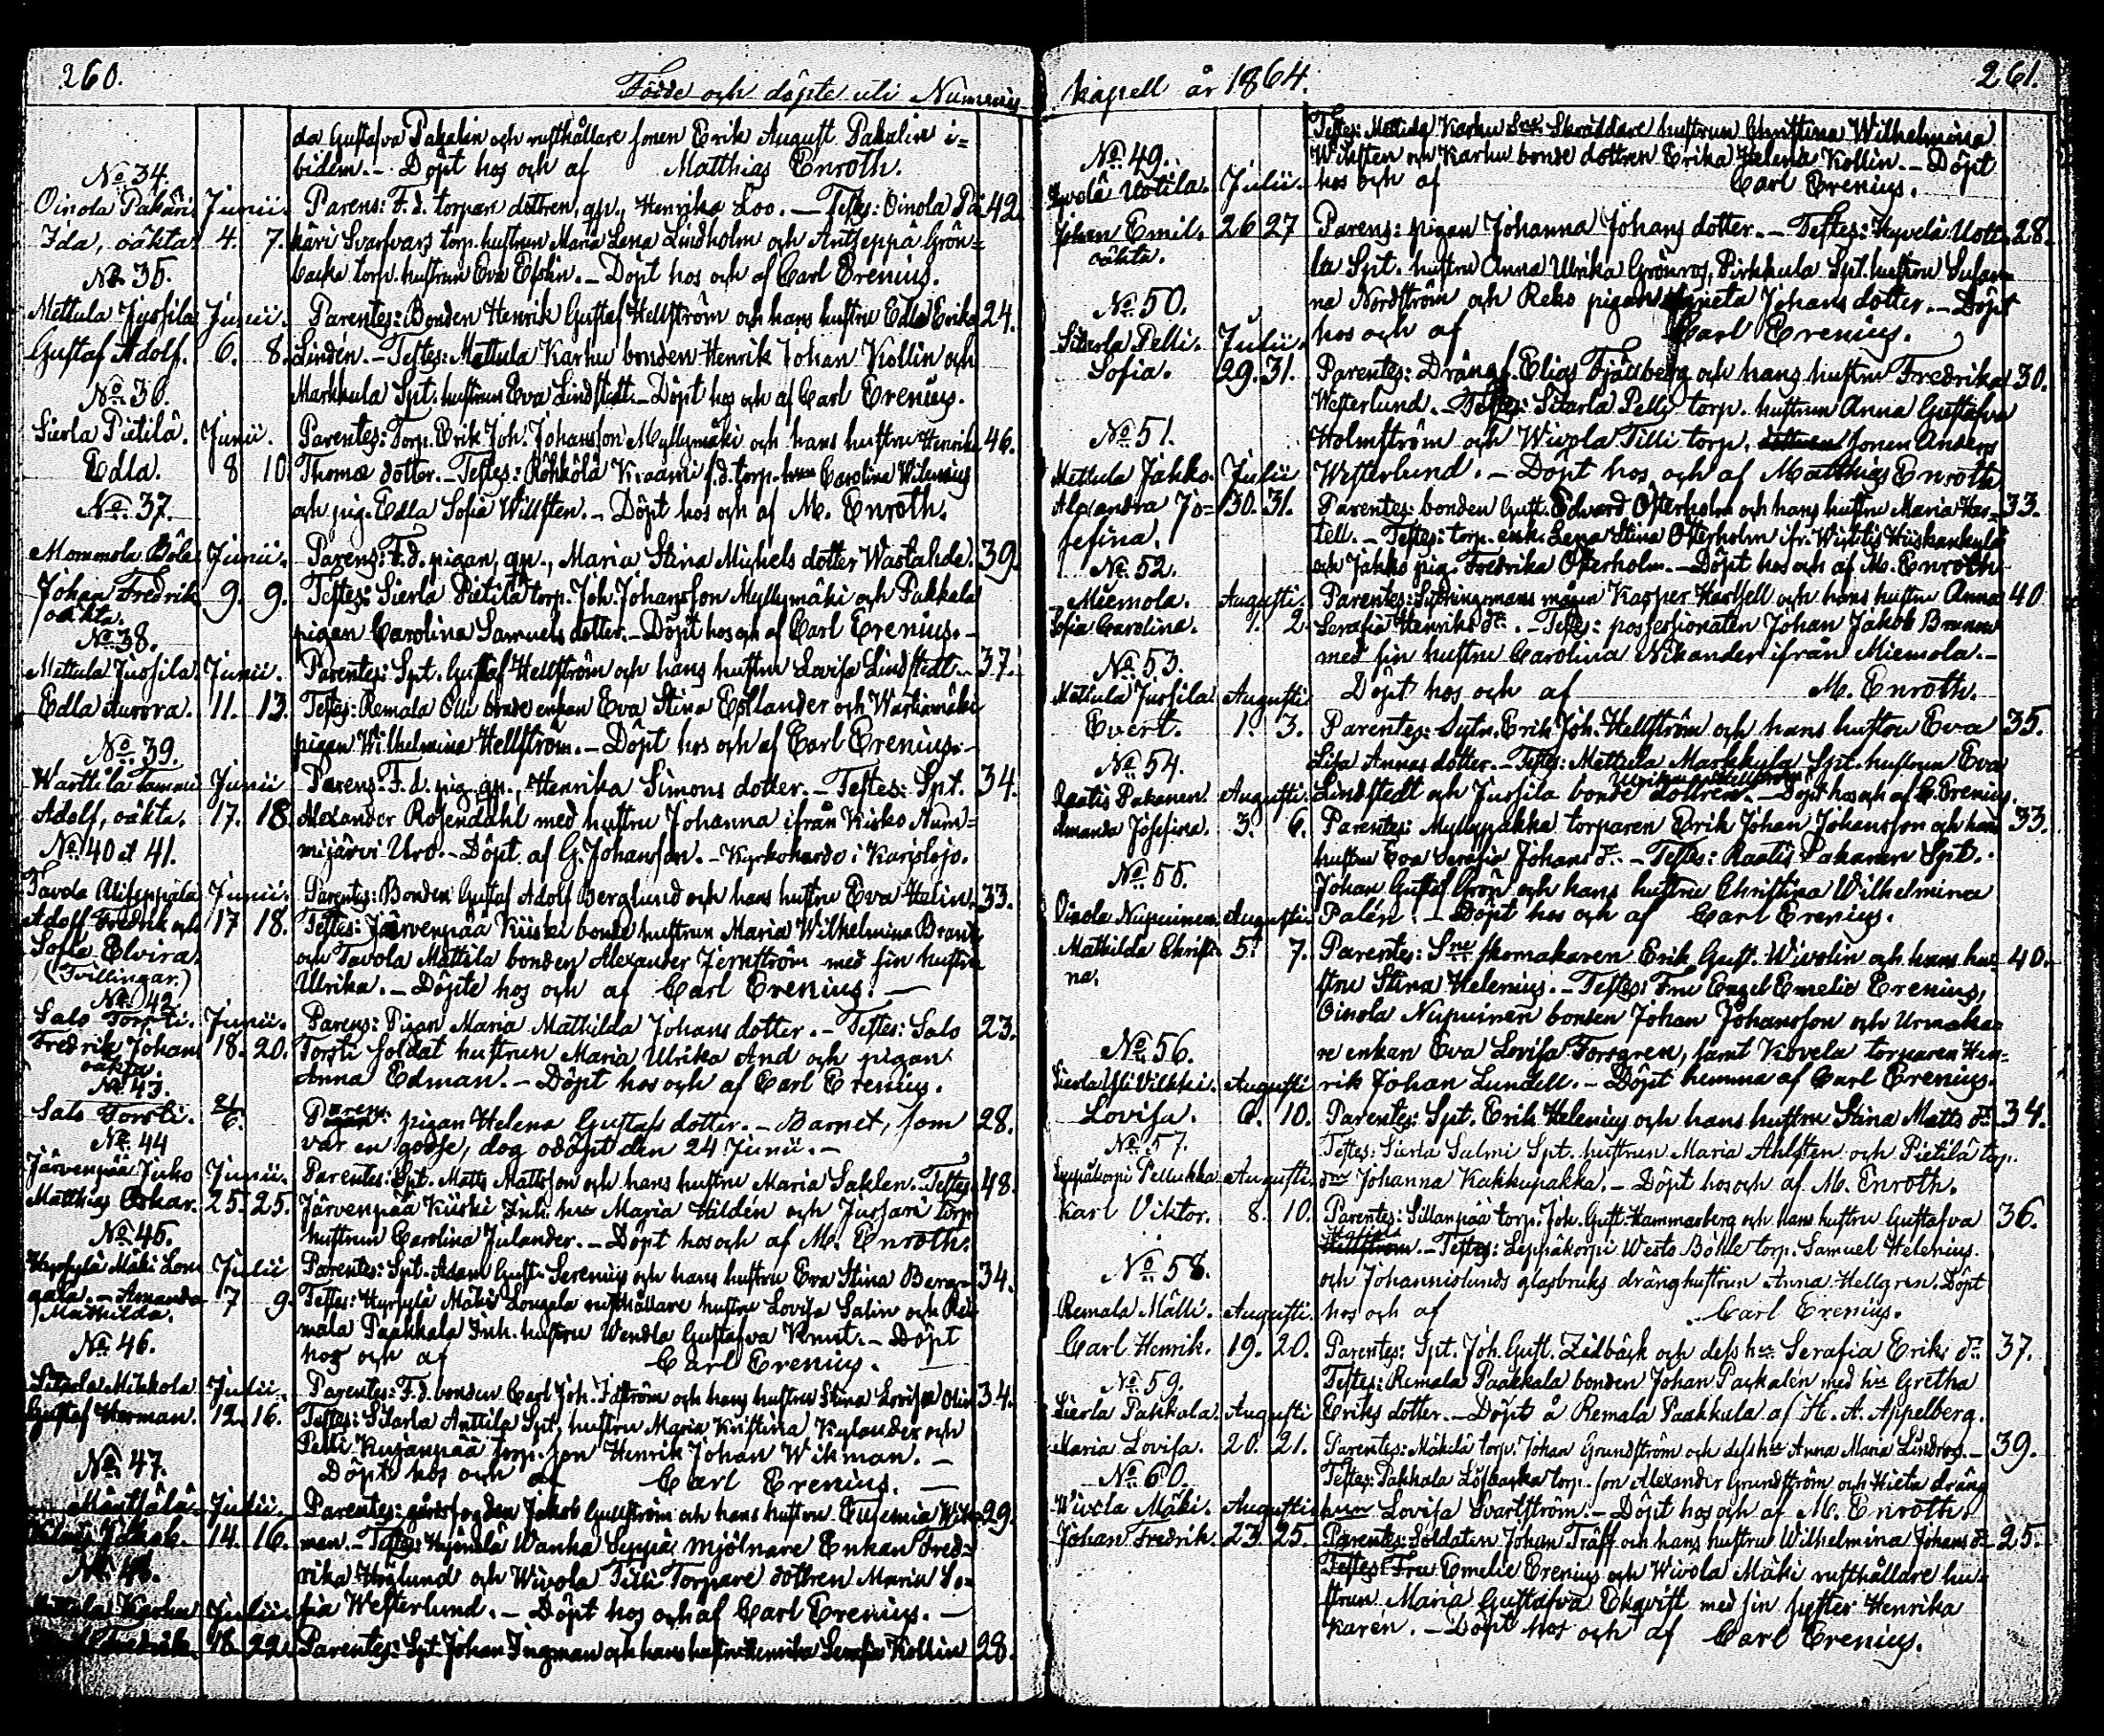 260.
Födde och döpte uti Nummis
da Gustafva Pakalin och rusthållare sonen Erik August Pakalin i=
bidem. - Döpt hos och af Matthias Enroth.
No 34.
Oinola Pakäri. Junii. Parens: F. d. torpare dottren, qp., Henrika Loo. - Testes: Oinola Pa= 42.
Ida, oäkta. 4. 7. käri Svarfvars torp. hustrun Maria Lena Lindholm och Antseppä Grön=
No 35.
backa torp. hustrun Eva - Döpt hos och af Carl Erenius.
Mettula Jussila Junii. Parentes: Bonden Henrik Gustaf Hellström och hans hustru Edla Erika 24.
Gustaf Adolf. 6. 8. Lindén. - Testes: Mettula Karhu bonden Henrik Johan Kollin och
No 36.
Markkula Spt. hustrun Eva Lindstedt. - Döpt hos och af Carl Erenius.
Sierla Pietilä. Junii. Parentes: Torp. Erik Joh. Johansson Myllymäki och hans hustru Henrika 46.
Edla. 8 10. Thomæ dotter. - Testes: Röhkölä f.d. torp. Carolina
No 37.
och pig. Edla Sofia Willsten. - Döpt hos och af M. Enroth.
Mommola Böle Junii. Parens: F. d. pigan, qp., Maria Stina Michels dotter Wastahde. 39.
Johan Fredrik 9. 9. Testes: Sierla Pietilä torp. Joh. Johansson Myllymäki och Pakkala
oäkta.
No 38.
pigan Carolina Samuels dotter. - Döpt hos och af Carl Erenius. -
Mettula Jussila. Junii. Parentes: Spt. Gustaf Hellström och hans hustru Lovisa Lindstedt. - 37.
Edla Aurora. 11. 13. Testes: Remala Olli bonde enkan Eva Stina Esllander och Wartiamäki
No 39.
pigan Wilhelmina Hellström. - Döpt hos och af Carl Erenius. -
Warttila Tammi Junii Parens: F. d. pig. qp., Henrika Simons dotter. - Testes: Spt. 34.
Adolf, oäkta. 17. 18. Alexander Rosendahl med hustru Johanna ifrån Kisko Num=
No 40 et 41.
mijärvi Uro. - Döpt af G. Johansson. - Kyrkoherde i Karislojo.
Tavola Aliseppälä Junii. Parentes: Bonden Gustaf Adolf Berglund och hans hustru Eva Halin. 33.
Adolf Fredrik och 17 18. Testes: Järvenpää Kiiski bonde hustrun Maria Wilhelmina Brant
Sofia Elvira.
(Tvillingar.)
och Tavola Mattila bonden Alexander Jernström med sin hustru
Ulrika. - Döpte hos och af Carl Erenius. -
No 42.
Salo Torsti. Junii. Parens: Pigan Maria Mathilda Johans dotter. - Testes: Salo 23.
Fredrik Johan 18. 20. Torsti soldat hustrun Maria Ulrika And och pigan
oäkta.
No 43.
Anna Edman. - Döpt hos och af Carl Erenius.
Salo Torsti. 21/6. Parens: pigan Helena Gustafs dotter. - Barnet, som 28.
No 44
var en gosse, dog odöpt den 24 Junii. -
Järvenpää Juho Junii. Parentes: Spt. Matts Mattsson och hans hustru Maria Saklen. - Testes: 48.
Matthias Oskar. 25. 25. Järvenpää Kiiski Inh. hu Maria Hildén och Jussari torp
No 45.
hustrun Carolina Julander. - Döpt hos och af M. Enroth.
Hyrsylä Mäki Lon= Julii Parentes: Spt. Adam Gust. Serenius och hans hustru Eva Stina Berg= 34.
gala. - Amanda 7 9. Testes: Hyrsylä Mäki Longala rusthållare hustru Lovisa Salin och Re=
Mathilda.
mala Paakkala Inh. hustru Wendla Gustafva Knut. - Döpt
No 46.
hos och af Carl Erenius. -
Sitarla Mikkola Julii. Parentes: F. d. bonden Carl Joh. Idström och hans hustru Stina Lovisa Olin 34.
Gustaf Herman. 12. 16. Testes: Sitarla Anttila Spt. hustru Maria Kristina Kylander och
Pelli Kujanpää torp. son Henrik Johan Wikman. -
No 47.
Döpt hos och af Carl Erenius. -
Mänttälä Julii. Parentes: gårdsfogden Jakob Gullström och hans hustru Eufemia Wik= 29.
14. 16. man. - Testes: Hyönölä Wanha Seppä, mjölnare Enkan Fred=
No 48.
rika Höglund och Wivola Tilli Torpare dottren Maria So=
Mettula Karhu Julii. fia Westerlund. - Döpt hos och af Carl Erenius. -
Fredrik. 18. 22. Parentes: Spt. Johan Ingman och hans hustru Henrika Serafia Kollin 28.
kapell år 1864.
261.
Testes: Mettula Karhu Sne Skräddare hustrun Christina Wilhelmina
No 49.
Willsten och Karhu bonde dottren Erika Helena Kollin. - Döpt
Hyvelä Uotila. Julii. hos och af Carl Erenius.
Johan Emil. 26 27 Parens: pigan Johanna Johans dotter. - Testes: Hyvelä Uoti= 28.
oäkta.
la Spt. hustru Anna Ulrika Grönros, Pirkkula Spt. hustru Susan=
No 50.
na Nordström och Reko pigan Johans dotter. - Döpt
Sitarla Pelli. Julii. hos och af Carl Erenius.
Sofia. 29. 31. Parentes: Dräng. Elias Fjällberg och hans hustru Fredrika 30.
Westerlund. - Testes: Sitarla Pelli torp. hustrun Anna Gustafva
No 51.
Holmström och Wivola Tilli torp. sonen Anders
Mettula Jakko. Julii Westerlund. - Döpt hos och af Matthias Enroth
Alexandra Jo= 30. 31. Parentes: bonden Gust. Edvard Österholm och hans hustru Maria Has= 33.
sefina.
tell. - Testes: torp. enk. Lena Stina Österholm ifr. Wihtis Hiiskankulä
No 52.
och Jakko pig. Fredrika Österholm. - Döpt hos och af M. Enroth
Miemola. Augusti. Parentes: Kasper Hartzell och hans hustru Anna 40
Sofia Carolina. 1. 2. Serafia Henriks dr. - Testes: possessionaten Johan Jakob Brunow
No 53.
med sin hustru Carolina Nikander ifrån Miemola. -
Mettula Jussila. Augusti Döpt hos och af M. Enroth.
Evert. 1. 3. Parentes: Sytn. Erik Joh. Hellström och hans hustru Eva 35.
No 54.
Lisa Annas dotter. - Testes: Mettula Markkula Spt. hustrun Eva
Raatis Pakanen. Augusti. Lindstedt och Jussila bonde dottren. - Döpt hos och af C. Erenius.
Amanda Josefina. 3. 6. Parentes: Myllypakka torparen Erik Johan Johansson och hans 33.
hustru Eva Serafia Johans dr. - Testes: Raatis Pakanen Spt.
No 55.
Johan Gustaf Grön och hans hustru Christina Wilhelmina
Oinola Nupuinen Augusti Palén. - Döpt hos och af Carl Erenius.
Mathilda Christi= 5. 7. Parentes: Sne skomakaren Erik Gust. Wivolin och hans hu= 40.
na.
stru Stina Helenius. - Testes: Fru Engel Emelie Erenius,
Oinola Nupuinen bonden Johan Johansson och Urmaka=
No 56.
re enkan Eva Lovisa Forsgren, samt Kovela torparen Hen=
Sierla Yli Vilkki. Augusti rik Johan Lundell. - Döpt hemma af Carl Erenius.
Lovisa. 6. 10. Parentes: Spt. Erik Helenius och hans hustru Stina Matts dr. 34.
No 57.
Testes: Sierla Salmi Spt. hustrun Maria Ahlsten och Pietilä top.
Leppäkorpi Pellukka Augusti. dtr Johanna Kakkupakka. - Döpt hos och af M. Enroth.
Karl Viktor. 8. 10. Parentes: Sillanpää torp. Joh. Gust. Hammarberg och hans hustru Gustafva 36.
Hellström. - Testes: Leppäkorpi Westo Böhle torp. Samuel Helenius.
No 58.
och Johannislunds glasbruks dräng hustrun Anna Hellgren. Döpt
Remala Mälli. Augusti. hos och af Carl Erenius.
Carl Henrik. 19. 20. Parentes: Spt. Joh. Gust. Zidbäck och dess hu Serafia Eriks dr. 37.
No 59.
Testes: Remala Paakkala bonden Johan Packalén med hu Gretha
Sierla Pakkala. Augusti Eriks dotter. - Döpt å Remala Paakkula af H. A. Appelberg.
Maria Lovisa. 20. 21. Parentes: Mäkilä torp. Johan Grundström och dess hu Anna Maria Lindroos. - 39.
No 60.
Testes: Pakkala Löfbacka torp. son Alexander Grundström och Hieta dräng
Wivola Mäki. Augusti hun Lovisa Svartström. - Döpt hos och af M. Enroth.
Johan Fredrik. 23. 25. Parentes: Soldaten Johan Träff och hans hustru Wilhelmina Johans dr. 25.
Testes: Fru Emelie Erenius och Wivola Mäki rusthållare hu=
strun Maria Gustafva Ekqvist med sin syster Henrika
Karén. - Döpt hos och af Carl Erenius.